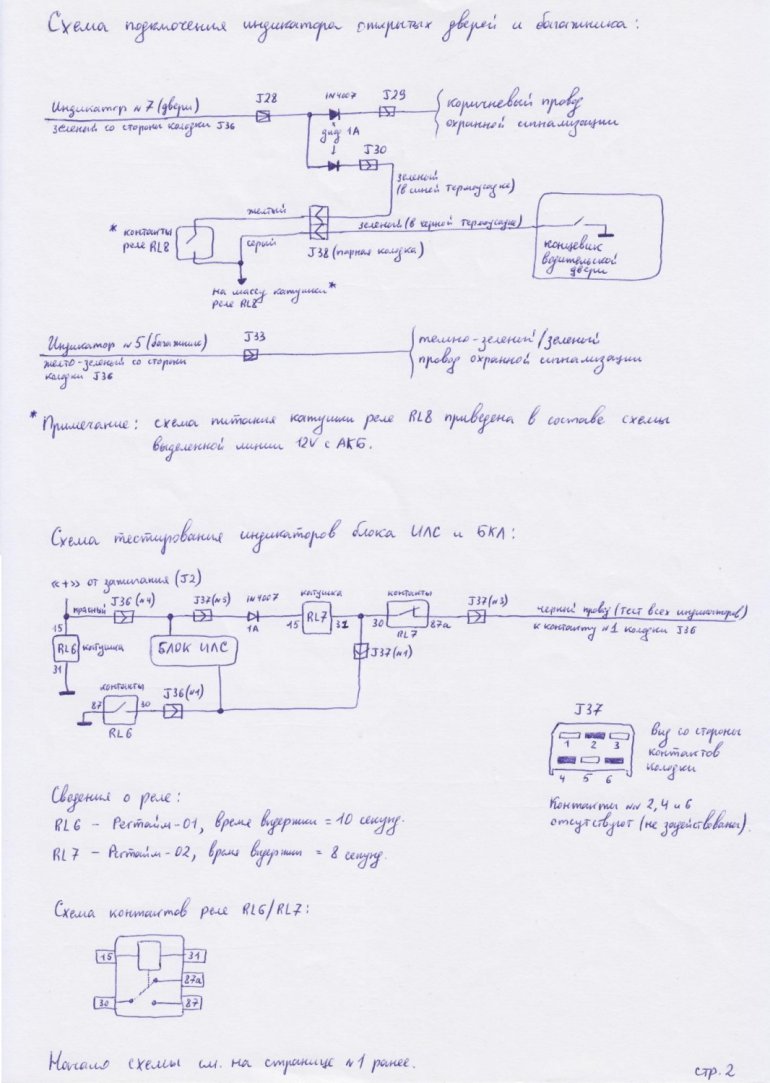 Схема подключения индикатора открытых дверей и багажника:
Индикатор №7 (двери)
зеленый со стороны колодки J36
J28
IN4007
диод 1А
J29
J30
коричневый провод
охранной сигнализации
зеленый
(в синей термоусадке)
желтый
зеленый (в черной термоусадке)
* контакты
реле RL8
серый
J38 (парная колодка)
на массу катушки *
реле RL8
концевик
водительской
двери
Индикатор №5 (багажник)
желто-зеленый со стороны
колодки J36
J33
темно-зеленый/зеленый
провод охранной сигнализации
* Примечание: схема питания катушки реле RL8 приведена в составе схемы
выделенной линии 12V с АКБ.
Схема тестирования индикаторов блока ИЛС и БКЛ:
«+» от зажигания (J2)
красный
J36 (№4)
J37 (№5)
IN4007
1А
катушка
15
RL7
31
контакты
30
RL7
87а
J37 (№3)
черный провод (тест всех индикаторов)
к контакту №1 колодки J36
15
RL6
катушка
31
БЛОК ИЛС
J37 (№1)
контакты
87
30
RL6
J36 (№1)
J37
1 2 3
4 5 6
Вид со стороны
контактов
колодки
Контакты №№ 2, 4 и 6
отсутствуют (не задействованы).
Сведения о реле:
RL6 – Регтайм-01, время выдержки = 10 секунд.
RL7 – Регтайм-02, время выдержки = 8 секунд.
Схема контактов реле RL6/RL7:
15
31
87а
30
87
Начало схемы см. на странице №1 ранее.
стр. 2